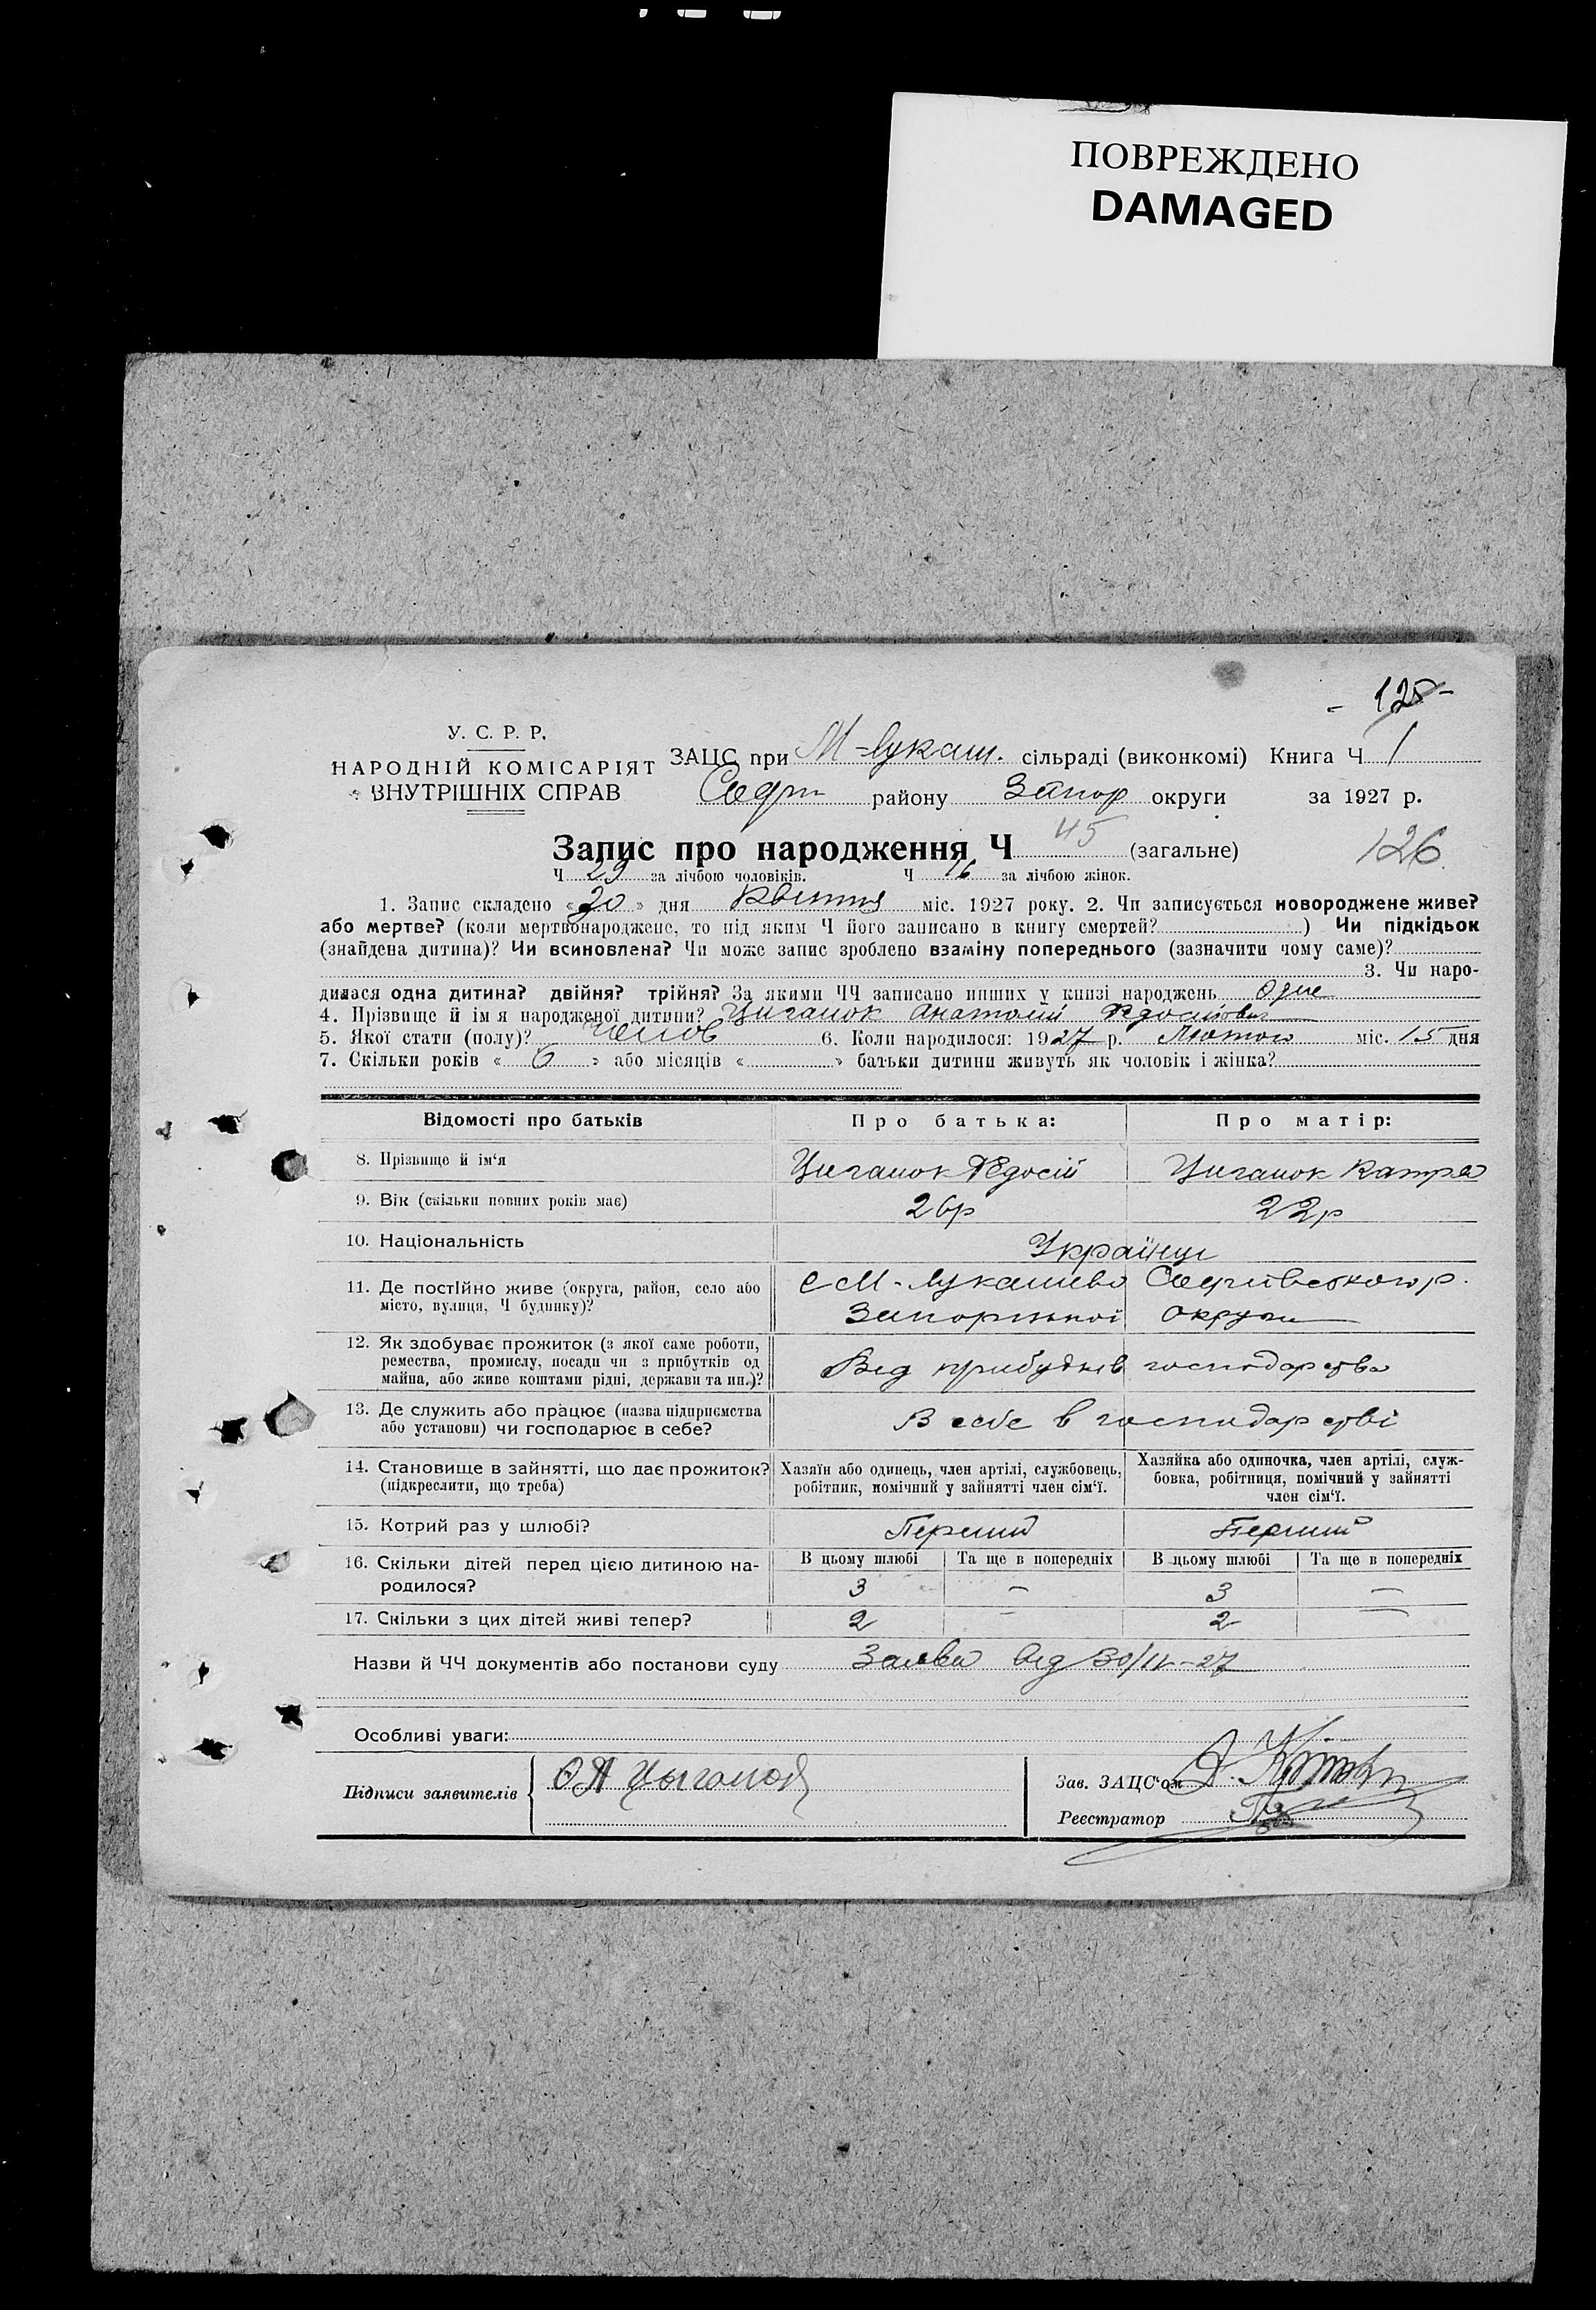 ПОВРЕЖДЕНО
DAMAGED
- 128 -
У. С. Р. Р.
НАРОДНІЙ КОМІСАРІЯТ
ВНУТРІШНІХ СПРАВ
ЗАЦС при М-Лукаш. сільраді (виконкомі) Книга Ч 1
Софіїв району Запор округи за 1927 р.
Запис про народження Ч 45 (загальне) 126
Ч 29 за лічбою чоловіків. Ч 16 за лічбою жінок.
1. Запис складено « 30 » дня Квітня міс. 1927 року. 2. Чи записується новороджене живе?
або мертве? (коли мертвонароджене, то під яким Ч його записано в книгу смертей? ) Чи підкідьок
(знайдена дитина)? Чи всиновлена? Чи може запис зроблено взаміну попереднього (зазначити чому саме)?
3. Чи наро-
дилася одна дитина? двійня? трійня? За якими ЧЧ записано инших у книзі народжень Одне
4. Прізвище й ім'я народженої дитини? Циганок Анатолій Федосійович
5. Якої стати (полу)? Чолов 6. Коли народилося: 1927 р. Лютого міс. 15 дня
7. Скільки років « 6 » або місяців « » батьки дитини живуть як чоловік і жінка?
Відомості про батьків Про батька: Про матір:
8. Прізвище й ім'я Циганок Федосій Циганок Катря
9. Вік (скільки повних років має) 26р 22р
10. Національність Українці
11. Де постійно живе (округа, район, село або С М-Лукашево Софіївського р.
місто, вулиця, Ч будинку)? Запоріжної округи
12. Як здобуває прожиток (з якої саме роботи,
ремества, промислу, посади чи з прибутків од Від прибутків господарства
майна, або живе коштами рідні, держави та ин.)?
13. Де служить або працює (назва підприємства В себе в господарстві
або установи) чи господарює в себе?
14. Становище в зайнятті, що дає прожиток? Хазяїн або одинець, член артілі, службовець, Хазяйка або одиночка, член артілі, служ-
(підкреслити, що треба) робітник, помічний у зайнятті член сім'ї. бовка, робітниця, помічний у зайнятті
член сім'ї.
15. Котрий раз у шлюбі? Перший Перший
16. Скільки дітей перед цією дитиною на- В цьому шлюбі Та ще в попередніх В цьому шлюбі Та ще в попередніх
родилося? 3 — 3 —
17. Скільки з цих дітей живі тепер? 2 — 2 —
Назви й ЧЧ документів або постанови суду Заява від 30/IV-27
Особливі уваги:
Підписи заявителів Зав. ЗАЦС'ом
Реєстратор